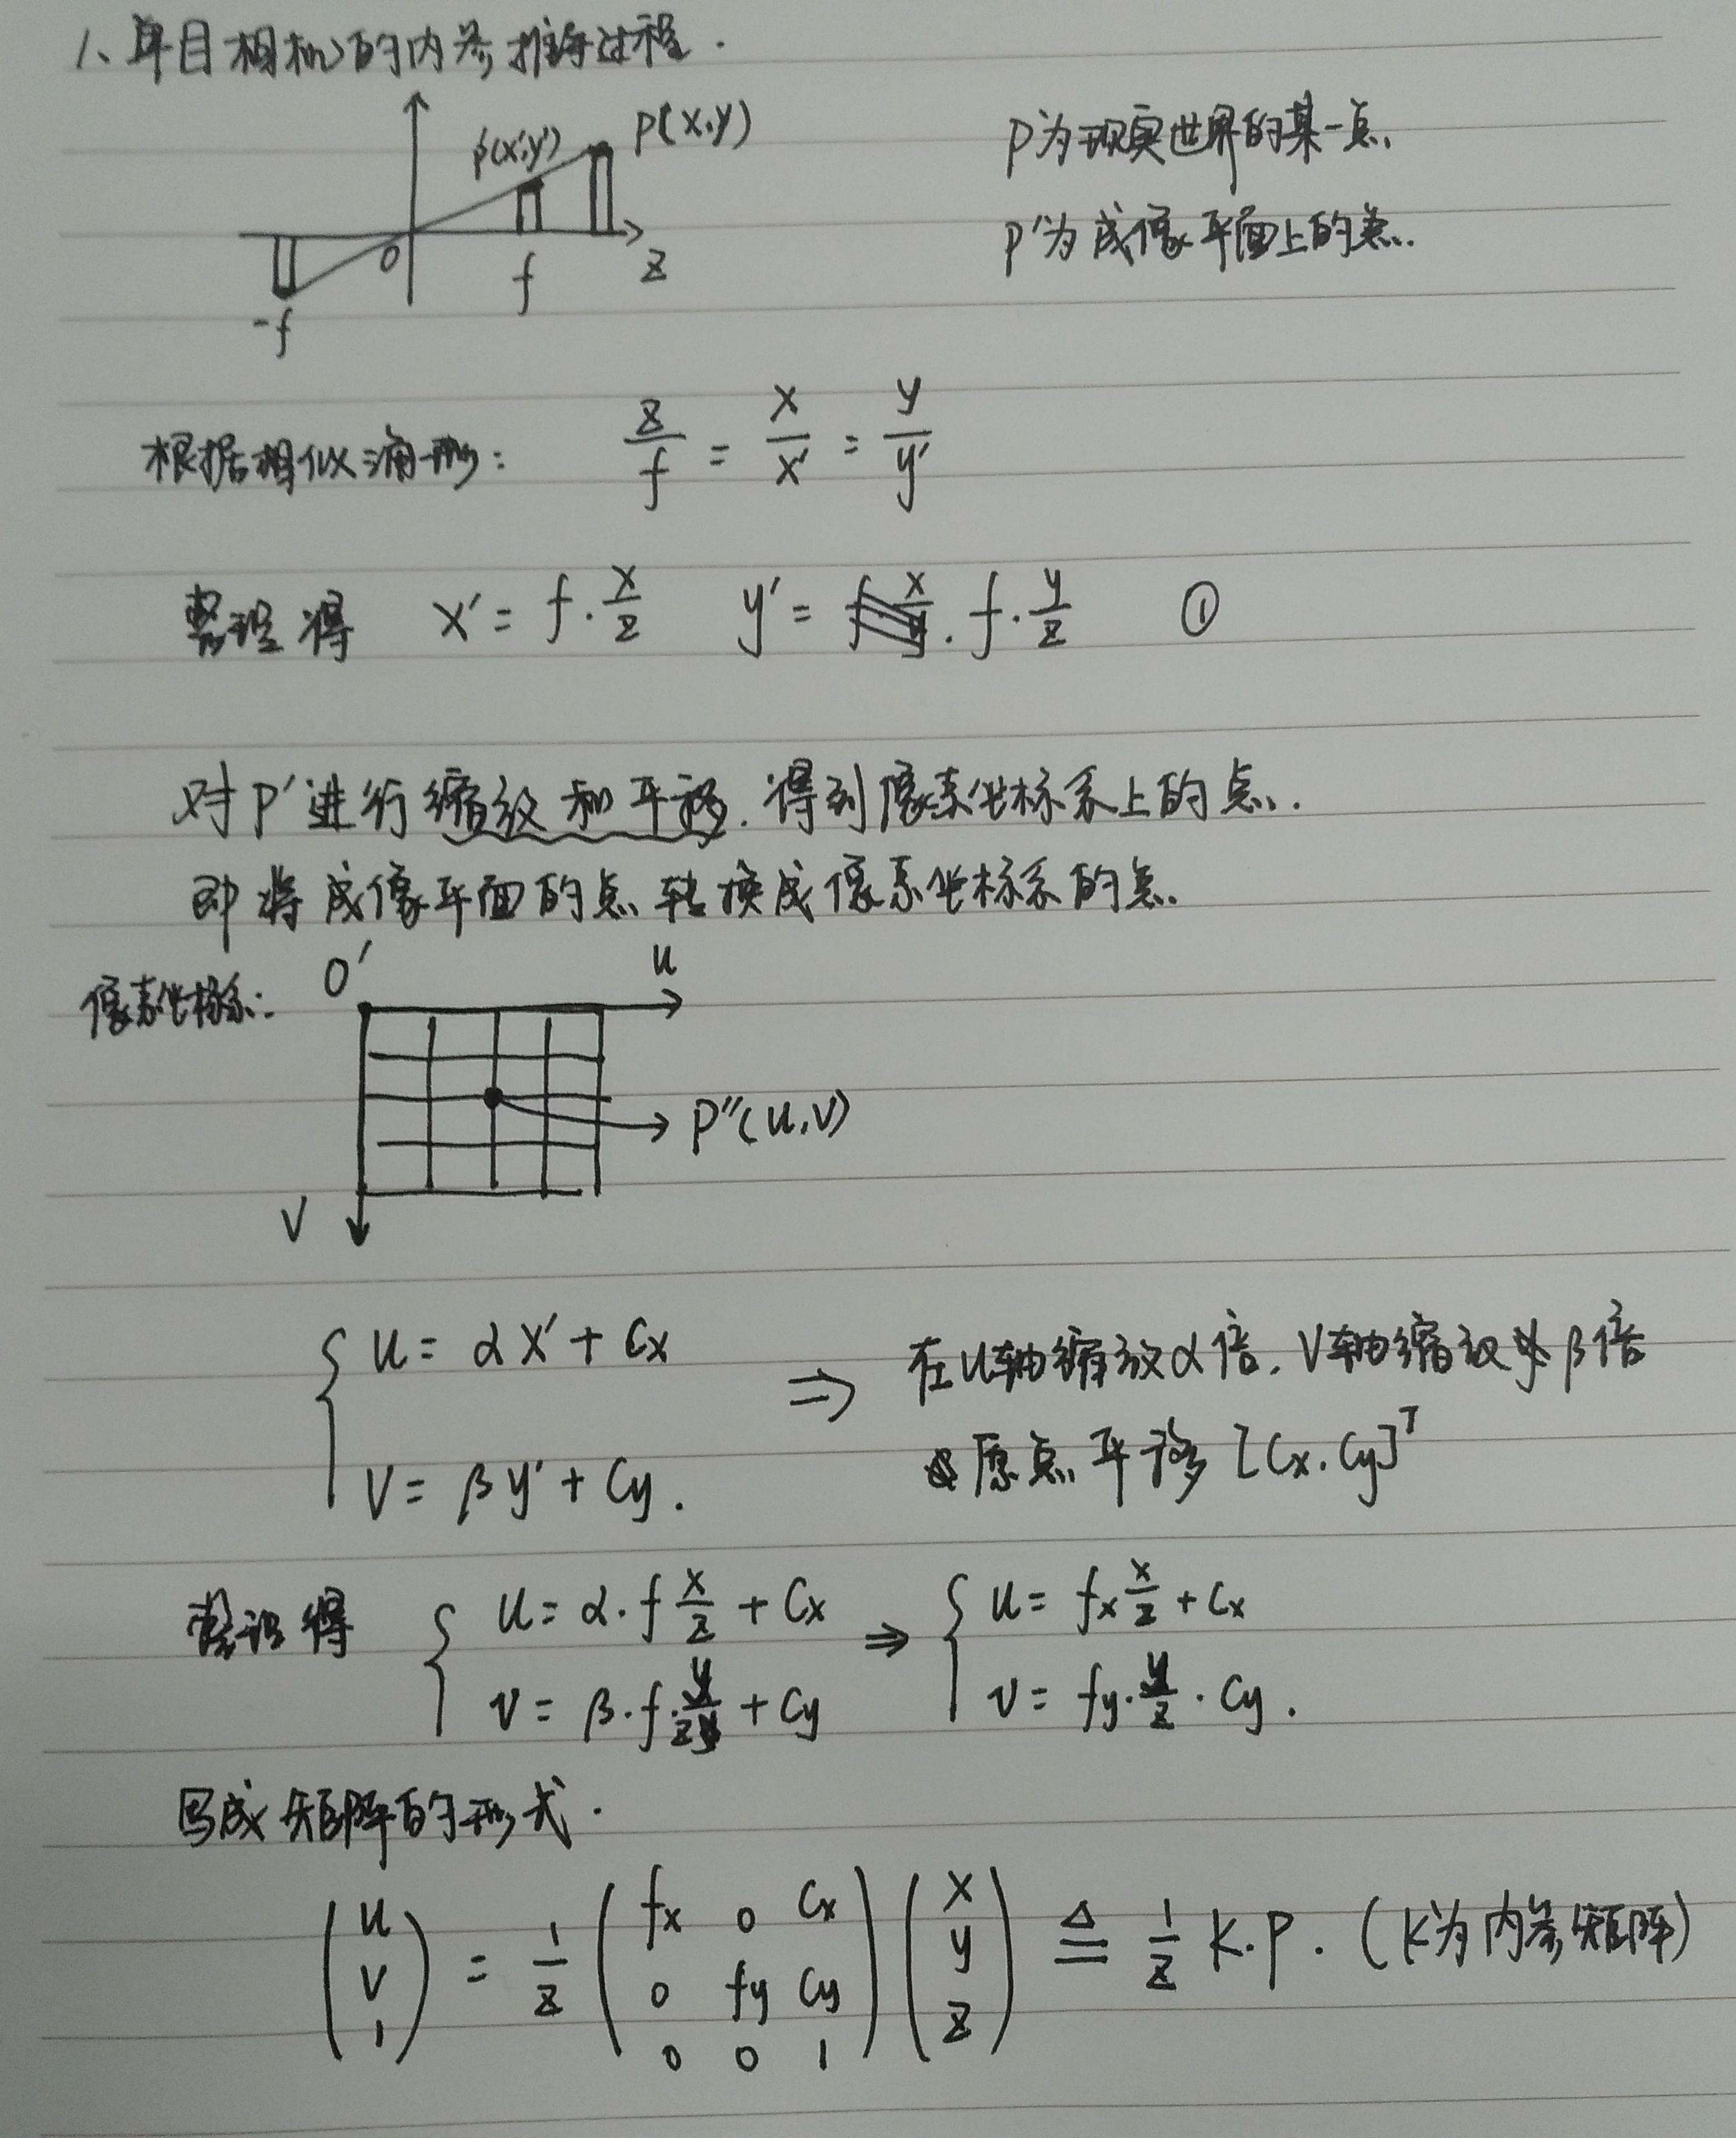 1、单目相机的内参推导过程.
p'(x',y') P(X,Y) P为现实世界的某一点.
O f Z P'为成像平面上的点.
-f
根据相似三角形: Z/f = X/X' = Y/Y'
整理得 X' = f·X/Z Y' = f·Y/Z ①
对P'进行缩放和平移.得到像素坐标系上的点.
即将成像平面的点转换成像素坐标系的点.
像素坐标系: O' u
P''(u,v)
V
{ u = αX' + Cx ⇒ 在u轴缩放α倍,V轴缩放β倍
V = βY' + Cy. 原点平移[Cx,Cy]^T
整理得 { u = α·f X/Z + Cx ⇒ { u = fx X/Z + Cx
v = β·f·Y/Z + Cy v = fy·Y/Z · Cy.
写成矩阵的形式.
(u v 1) = 1/Z (fx 0 Cx 0 fy Cy 0 0 1) (X Y Z) ≜ 1/Z K·P. (K为内参矩阵)